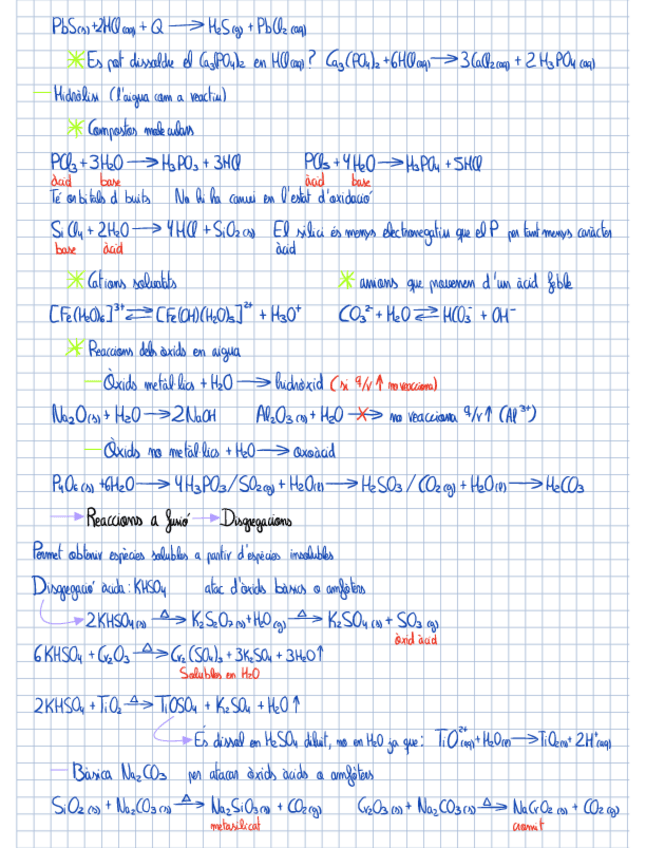 PbS(s)+2HCl(aq) + Q ⟶ H2S(g) + PbCl2(aq)
* Es pot dissoldre el Ca3(PO4)2 en HCl(aq)? Ca3(PO4)2 + 6HCl(aq) ⟶ 3CaCl2(aq) + 2H3PO4(aq)
— Hidròlisi (l'aigua com a reactiu)
* Compostos moleculars
PCl3 + 3H2O ⟶ H3PO3 + 3HCl PCl5 + 4H2O ⟶ H3PO4 + 5HCl
àcid base àcid base
Té orbitals d buits No hi ha canvi en l'estat d'oxidació
SiCl4 + 2H2O ⟶ 4HCl + SiO2(s) El silici és menys electronegatiu que el P per tant menys caràcter
base àcid àcid
* Cations solvatats * anions que provenen d'un àcid feble
[Fe(H2O)6]3+ ⇄ [Fe(OH)(H2O)5]2+ + H3O+ CO3 2- + H2O ⇄ HCO3- + OH-
* Reaccions dels òxids en aigua
— Òxids metàl·lics + H2O ⟶ hidròxid (si q/r ↑ no reacciona)
Na2O(s) + H2O ⟶ 2NaOH Al2O3(s) + H2O ⟶ no reacciona q/r↑ (Al3+)
— Òxids no metàl·lics + H2O ⟶ oxoàcid
P4O6(s) + 6H2O ⟶ 4H3PO3/SO2(g) + H2O(l) ⟶ H2SO3/CO2(g) + H2O(l) ⟶ H2CO3
⟶ Reaccions a fusió ⟶ Disgregacions
Permet obtenir espècies solubles a partir d'espècies insolubles
Disgregació àcida: KHSO4 atac d'òxids bàsics o amfòters
2KHSO4(s) Δ⟶ K2S2O7(s) + H2O(g) Δ⟶ K2SO4(s) + SO3(g)
òxid àcid
6KHSO4 + Cr2O3 Δ⟶ Cr2(SO4)3 + 3K2SO4 + 3H2O↑
Solubles en H2O
2KHSO4 + TiO2 Δ⟶ TiOSO4 + K2SO4 + H2O↑
És dissol en H2SO4 diluït, no en H2O ja que: TiO2+(aq) + H2O(l) ⟶ TiO2(s) + 2H+(aq)
— Bàsica Na2CO3 per atacar òxids àcids o amfòters
SiO2(s) + Na2CO3(s) Δ⟶ Na2SiO3(s) + CO2(g) Cr2O3(s) + Na2CO3(s) Δ⟶ NaCrO2(s) + CO2(g)
metasilicat cromit